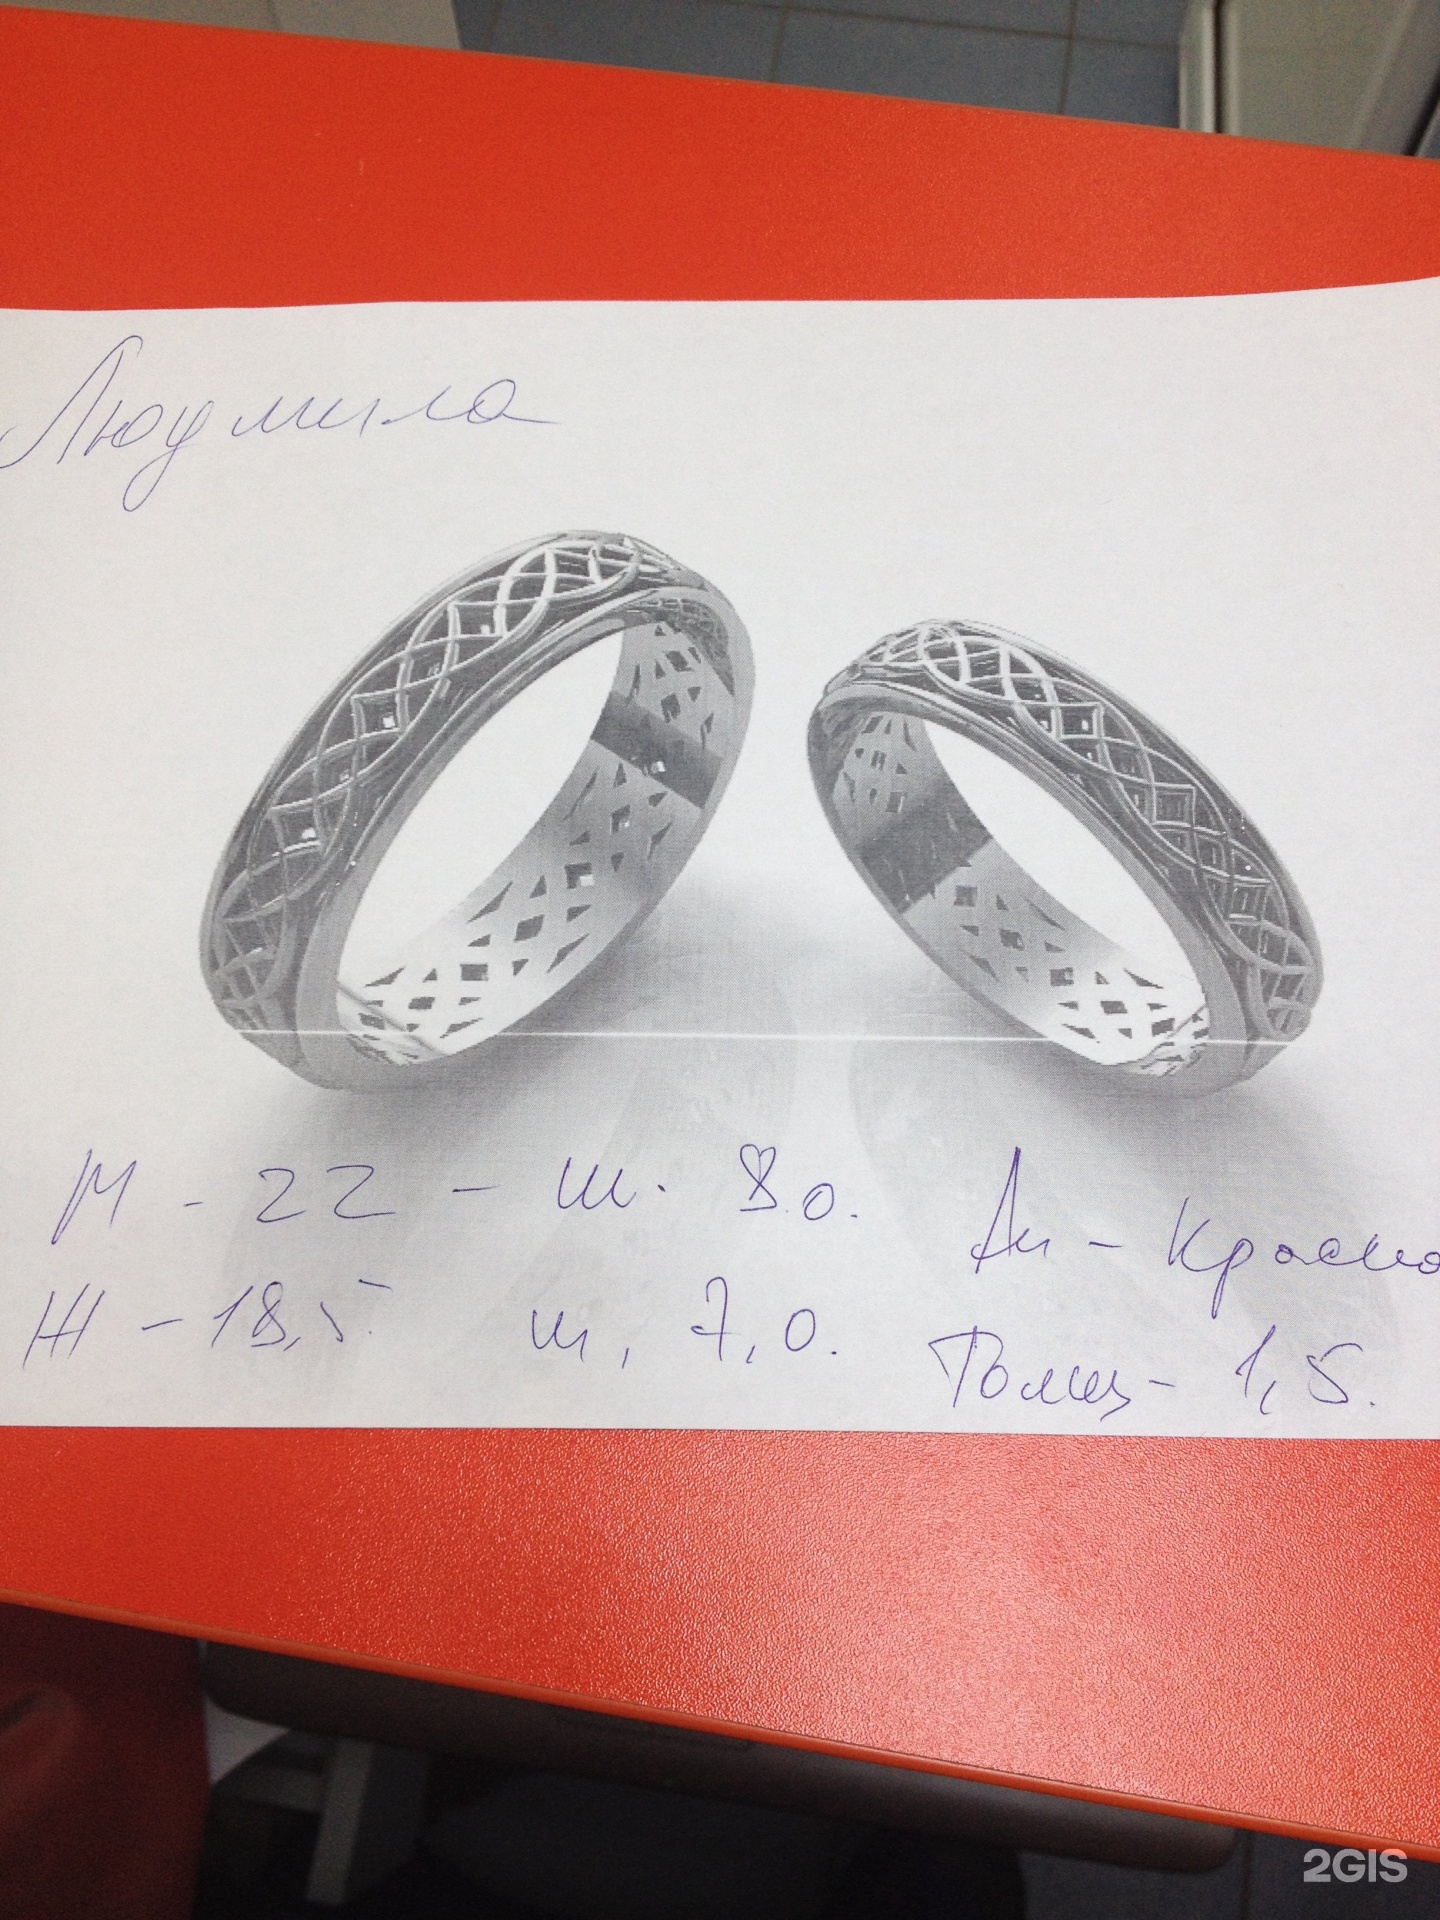 Людмила
М - 22 - ш. 8.0.
Ж - 18,5 ш, 7,0.
- Красно
Толщ - 1,5.
2GIS